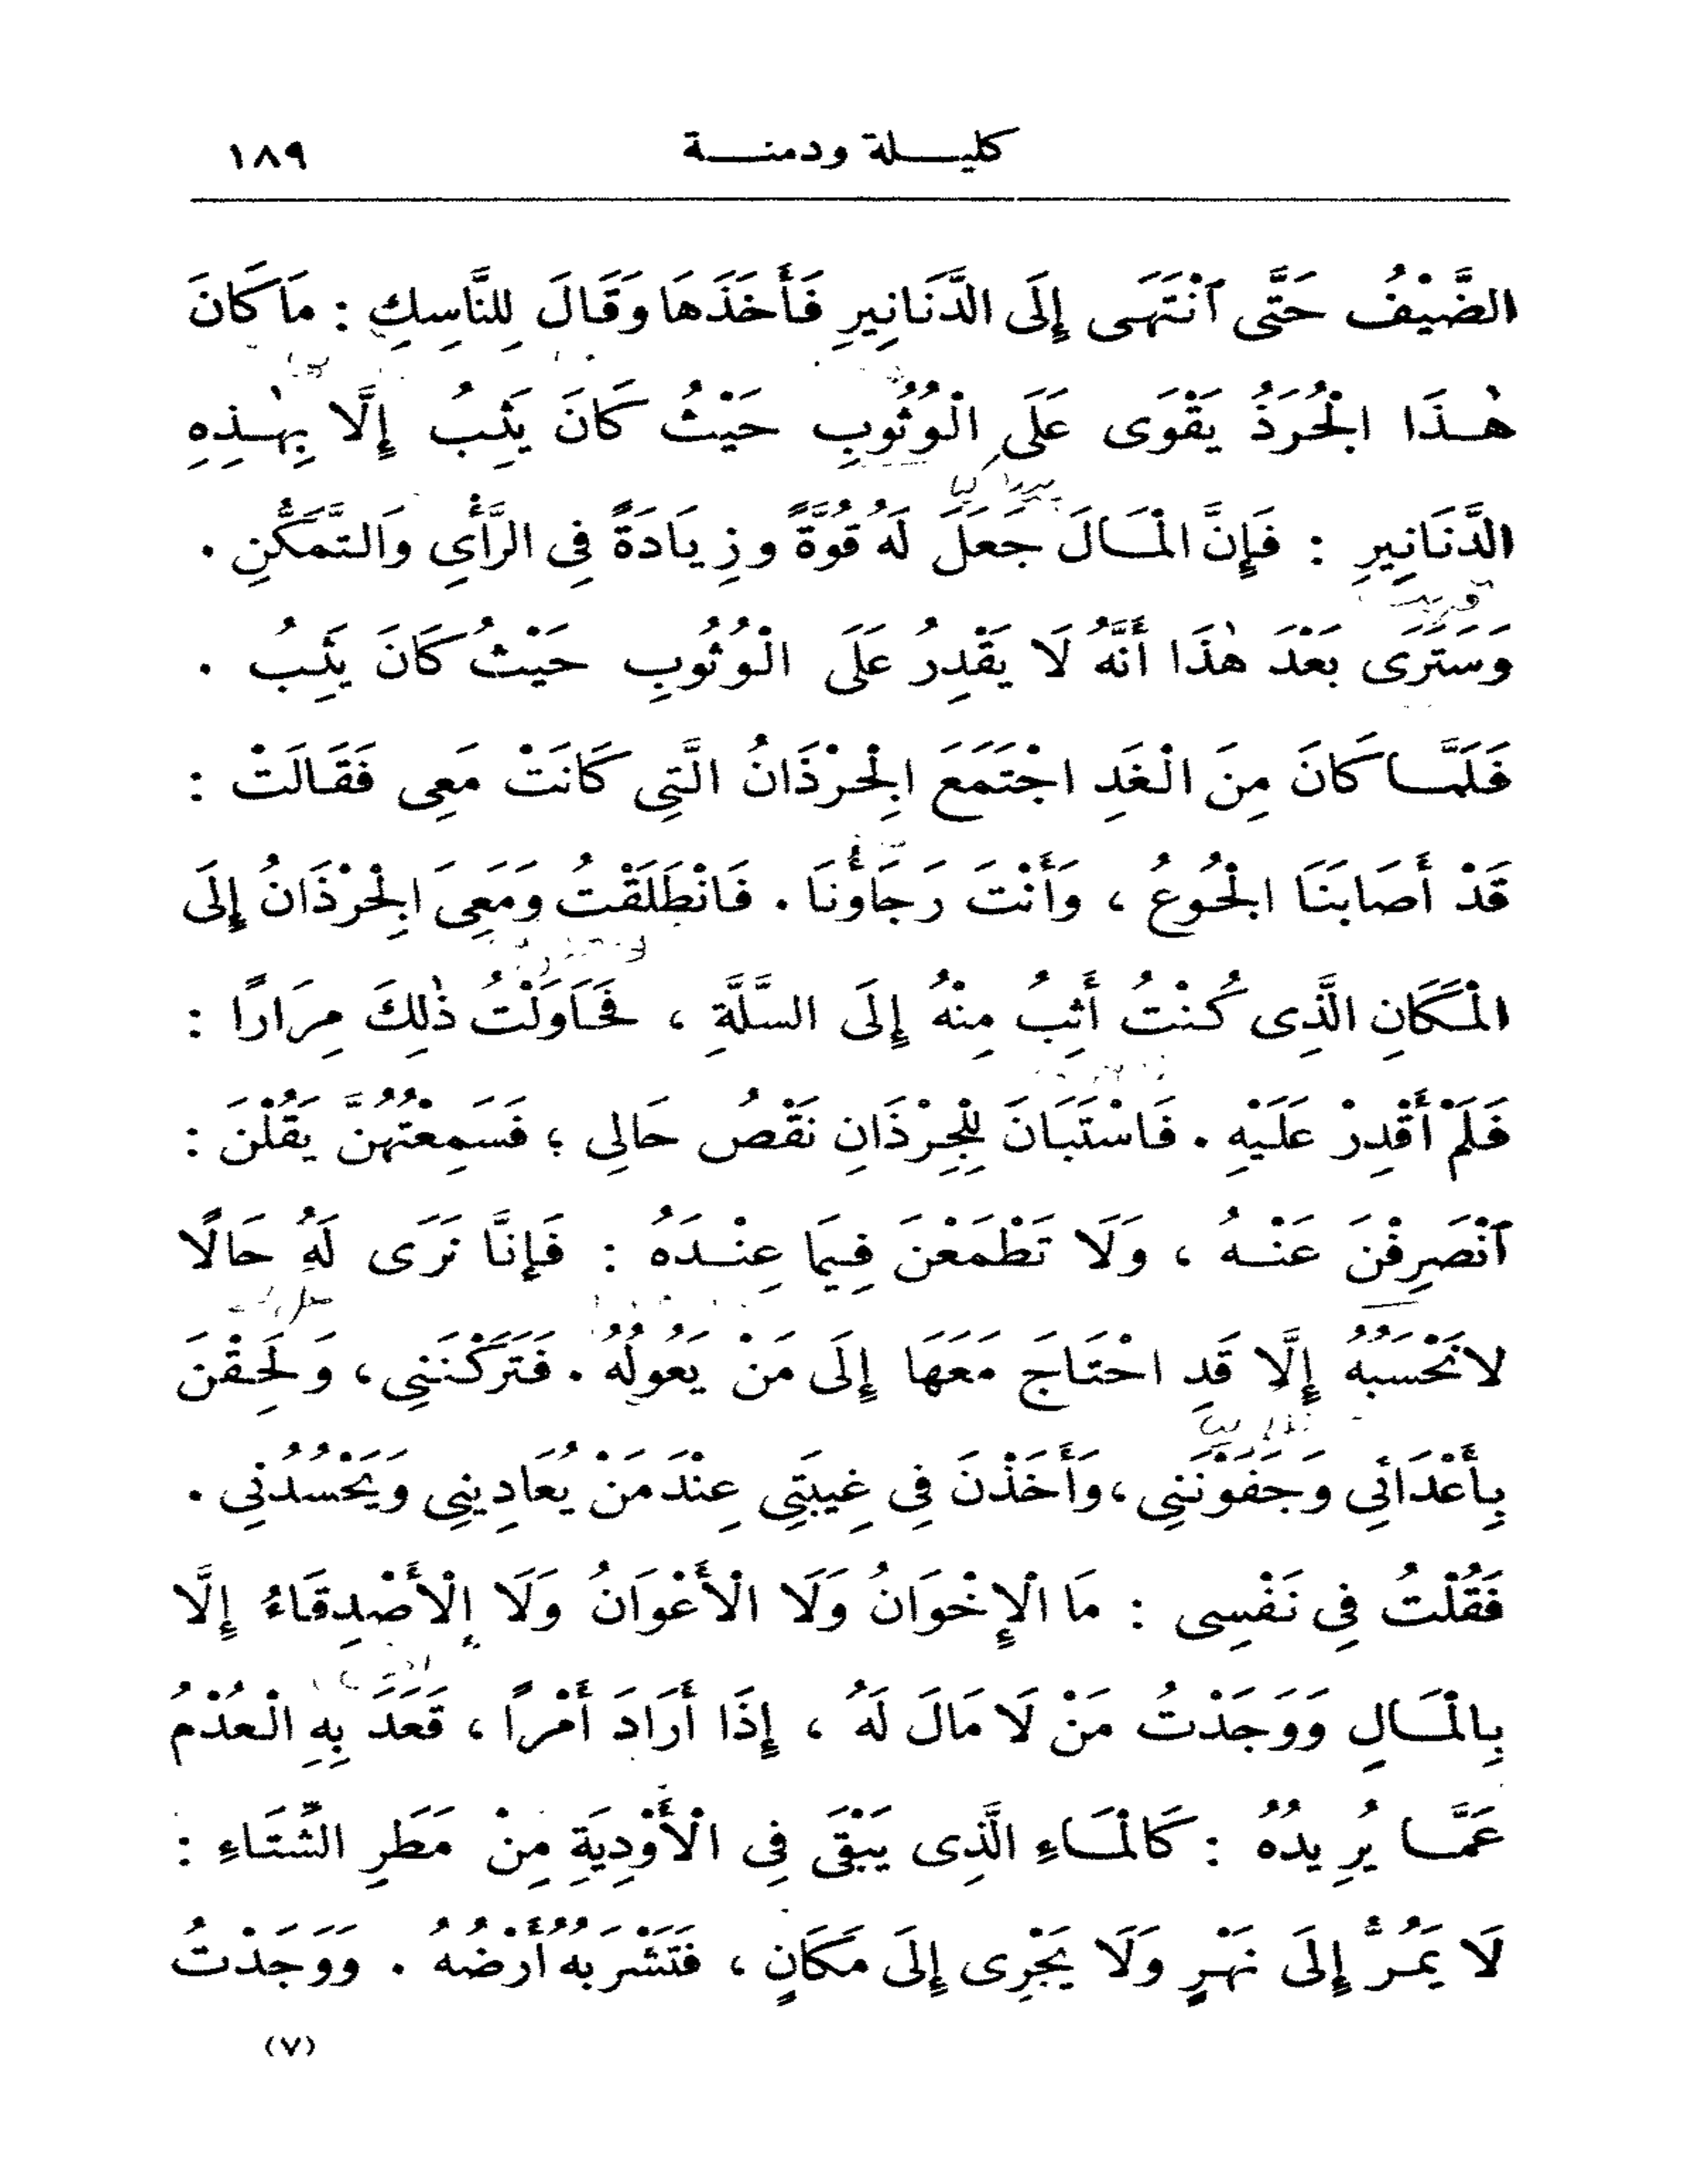 كليلة ودمنة ١٨٩
الضَّيْفُ حَتَّى ٱنْتَهَى إِلَى الدَّنَانِيرِ فَأَخَذَهَا وَقَالَ لِلنَّاسِكِ : مَا كَانَ
هٰذَا الْجُرَذُ يَقْوَى عَلَى الْوُثُوبِ حَيْثُ كَانَ يَثِبُ إِلَّا بِهٰذِهِ
الدَّنَانِيرِ : فَإِنَّ الْمَالَ جَعَلَ لَهُ قُوَّةً وزِيَادَةً فِى الرَّأْيِ وَالتَّمَكُّنِ .
وَسَتَرَى بَعْدَ هٰذَا أَنَّهُ لَا يَقْدِرُ عَلَى الْوُثُوبِ حَيْثُ كَانَ يَثِبُ .
فَلَمَّا كَانَ مِنَ الْغَدِ اجْتَمَعَ الْجِرْذَانُ الَّتِى كَانَتْ مَعِى فَقَالَتْ :
قَدْ أَصَابَنَا الْجُوعُ ، وَأَنْتَ رَجَاؤُنَا . فَانْطَلَقْتُ وَمَعِىَ الْجِرْذَانُ إِلَى
الْمَكَانِ الَّذِى كُنْتُ أَثِبُ مِنْهُ إِلَى السَّلَّةِ ، فَحَاوَلْتُ ذٰلِكَ مِرَارًا :
فَلَمْ أَقْدِرْ عَلَيْهِ . فَاسْتَبَانَ لِلْجِرْذَانِ نَقْصُ حَالِى ؛ فَسَمِعْتُهُنَّ يَقُلْنَ :
ٱنْصَرِفْنَ عَنْهُ ، وَلَا تَطْمَعْنَ فِيمَا عِنْدَهُ : فَإِنَّا نَرَى لَهُ حَالًا
لانَحْسَبُهُ إِلَّا قَدِ احْتَاجَ مَعَهَا إِلَى مَنْ يَعُولُهُ . فَتَرَكْنَنِى ، وَلَحِقْنَ
بِأَعْدَائِى وَجَفَوْنَنِى ، وَأَخَذْنَ فِى غِيبَتِى عِنْدَ مَنْ يُعَادِينِى وَيَحْسُدُنِى .
فَقُلْتُ فِى نَفْسِى : مَا الْإِخْوَانُ وَلَا الْأَعْوَانُ وَلَا الْأَصْدِقَاءُ إِلَّا
بِالْمَالِ وَوَجَدْتُ مَنْ لَا مَالَ لَهُ ، إِذَا أَرَادَ أَمْراً ، قَعَدَ بِهِ الْعُدْمُ
عَمَّا يُرِيدُهُ : كَالْمَاءِ الَّذِى يَبْقَى فِى الْأَوْدِيَةِ مِنْ مَطَرِ الشِّتَاءِ :
لَا يَمُرُّ إِلَى نَهْرٍ وَلَا يَجْرِى إِلَى مَكَانٍ ، فَتَشْرَبُهُ أَرْضُهُ . وَوَجَدْتُ
(٧)